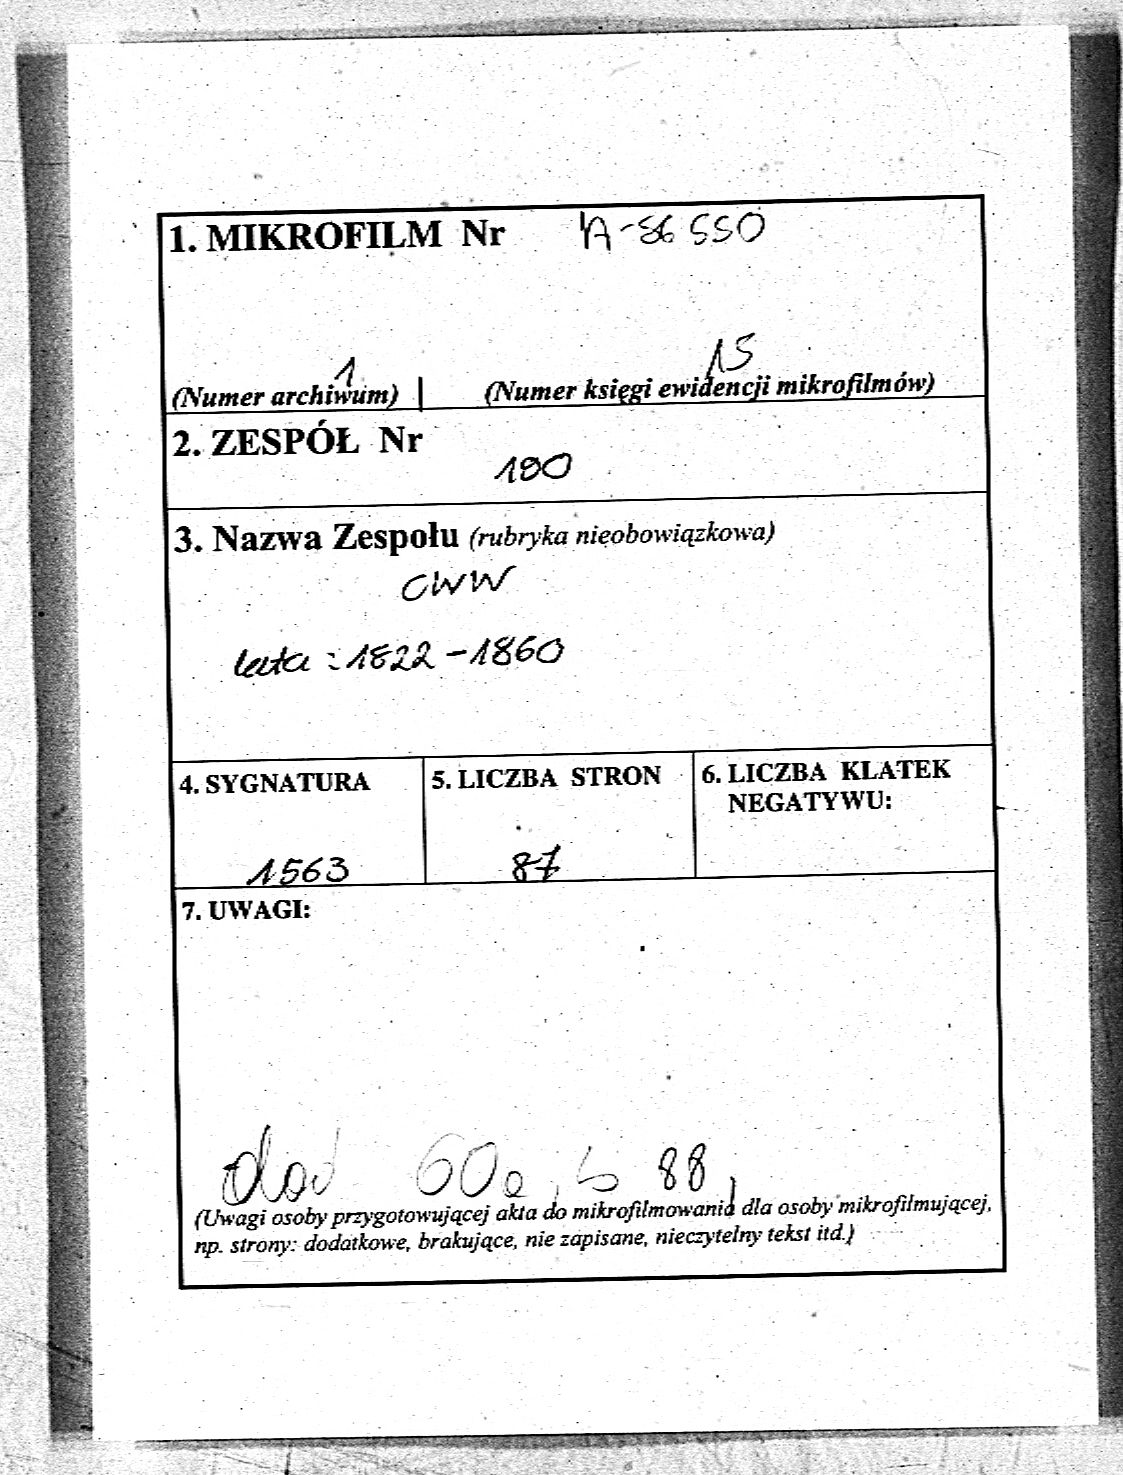 1. MIKROFILM Nr A-86 550
1 15
(Numer archiwum) | (Numer księgi ewidencji mikrofilmów)
2. ZESPÓŁ Nr
190
3. Nazwa Zespołu (rubryka nieobowiązkowa)
CWW
lata : 1822 - 1860
4. SYGNATURA 5. LICZBA STRON 6. LICZBA KLATEK
NEGATYWU:
1563 87
7. UWAGI:
dod 60a, b 88,
(Uwagi osoby przygotowującej akta do mikrofilmowania dla osoby mikrofilmującej,
np. strony: dodatkowe, brakujące, nie zapisane, nieczytelny tekst itd.)